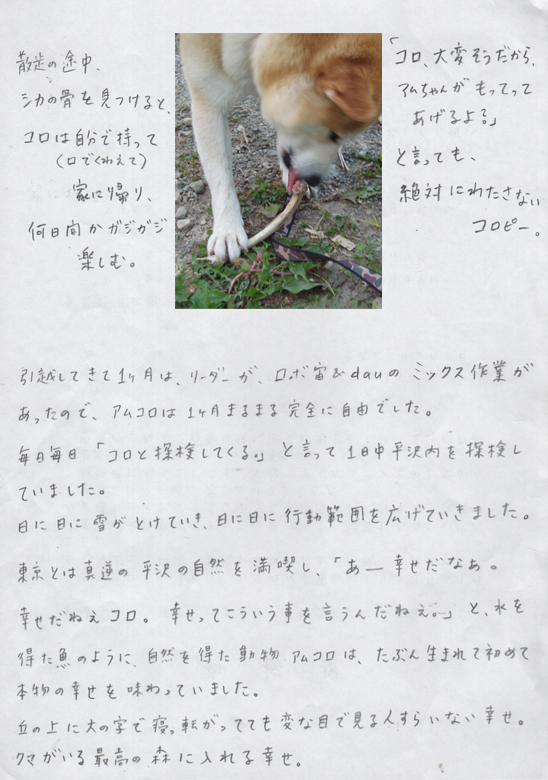 散歩の途中、
シカの骨を見つけると、
コロは自分で持って
(口でくわえて)
家に帰り、
何日間かガジガジ
楽しむ。
「コロ、大変そうだから、
アムちゃんがもってって
あげるよ?」
と言っても、
絶対にわたさない
コロピー。
引越してきて1ヶ月は、リーダーが、ロボ宙&dauのミックス作業が
あったので、アムコロは1ヶ月まるまる完全に自由でした。
毎日毎日「コロと探検してくる。」と言って1日中平沢内を探検し
ていました。
日に日に雪がとけていき、日に日に行動範囲を広げていきました。
東京とは真逆の平沢の自然を満喫し、「あー幸せだなぁ。
幸せだねえコロ。幸せってこういう事を言うんだねぇ。」と、水を
得た魚のように、自然を得た動物アムコロは、たぶん生まれて初めて
本物の幸せを味わっていました。
丘の上に大の字で寝っ転がってても変な目で見る人すらいない幸せ。
クマがいる最高の森に入れる幸せ。